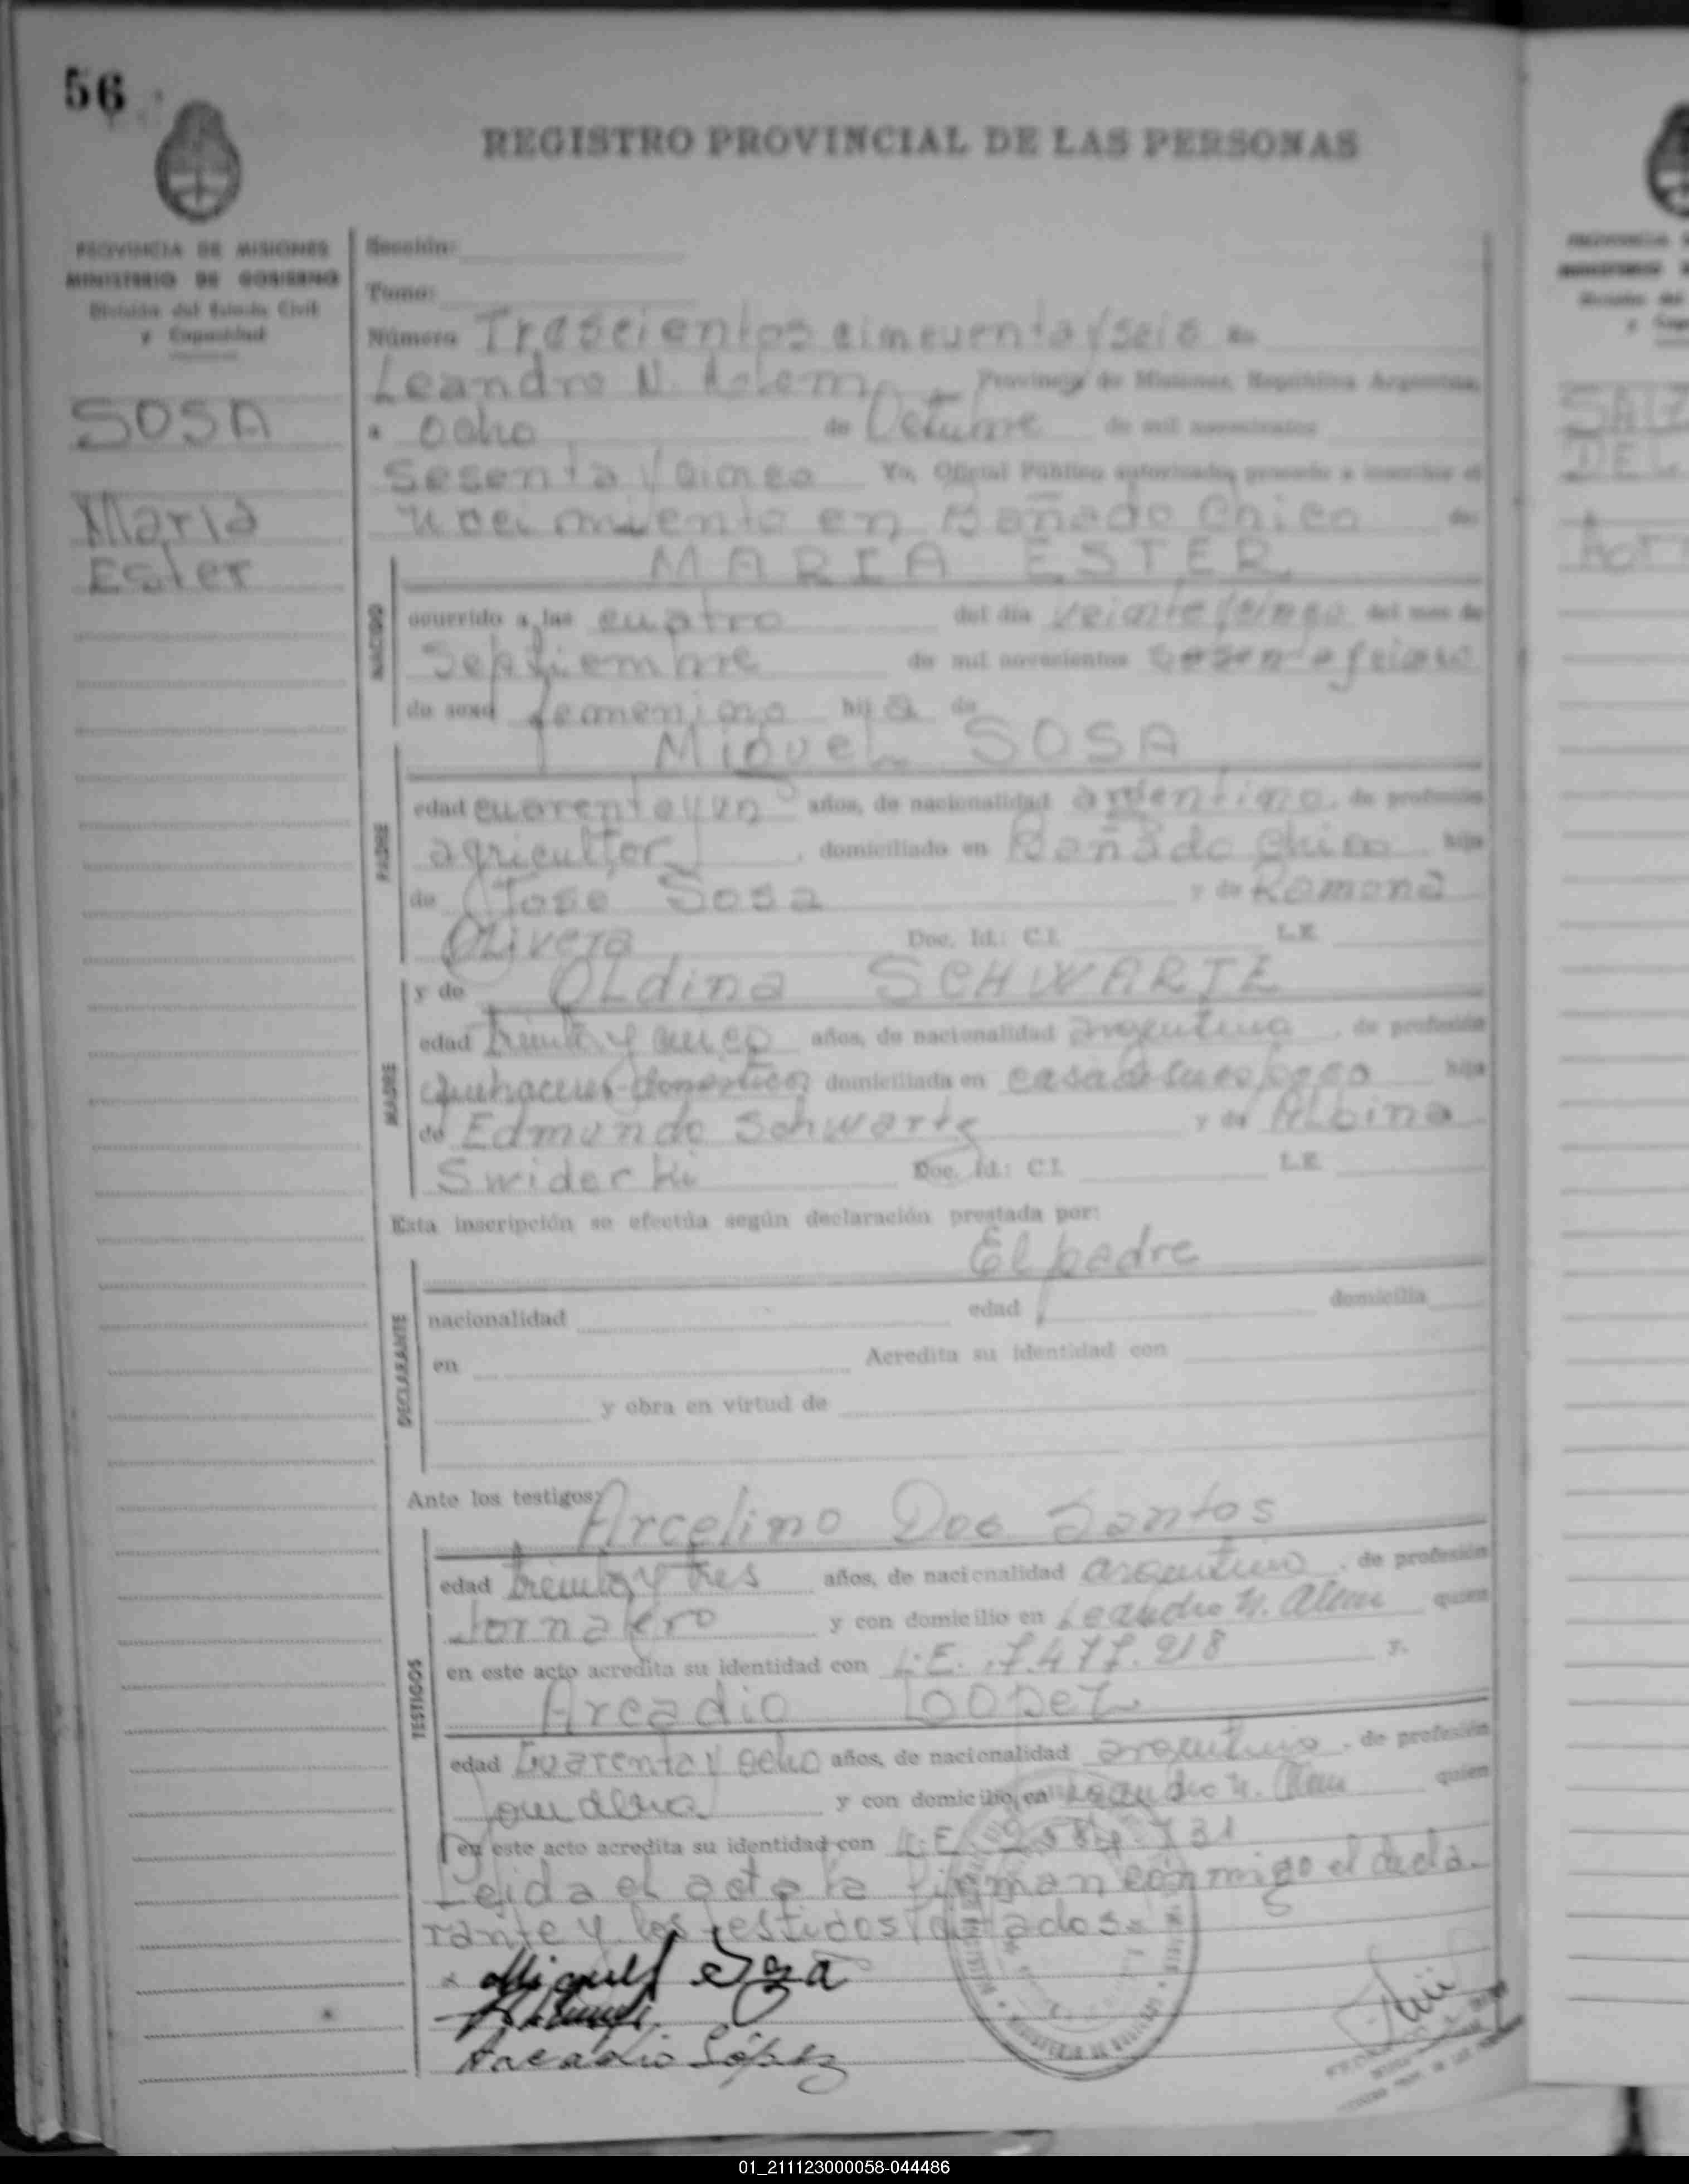 56
REGISTRO PROVINCIAL DE LAS PERSONAS
PROVINCIA DE MISIONES
MINISTERIO DE GOBIERNO
División del Estado Civil
y Capacidad
SOSA
Maria
Ester
Sección:
Tomo:
Número Trescientos cincuenta y seis En
Leandro N. Alem Provincia de Misiones, República Argentina,
a Ocho de Octubre de mil novecientos
Sesenta y cinco Yo, Oficial Público autorizado, procedo a inscribir el
nacimiento en Bañado Chico de:
MARIA ESTER
NACIDO
ocurrido a las cuatro del día veinte y cinco del mes de
Septiembre de mil novecientos sesenta y cinco
de sexo femenino hija de
Miguel SOSA
PADRE
edad cuarenta y un años, de nacionalidad argentino, de profesión
agricultor, domiciliado en Bañado Chico hijo
de Jose Sosa y de Ramona
Olivera Doc. Id.: C.I. L.E.
y de Oldina SCHWARTZ
MADRE
edad treinta y cinco años, de nacionalidad argentina, de profesión
quehaceres domesticos domiciliada en casa de su esposo hija
de Edmundo Schwartz y de Albina
Swiderki Doc. Id.: C.I. L.E.
Esta inscripción se efectúa según declaración prestada por:
El padre
DECLARANTE
nacionalidad edad domicilia
en Acredita su identidad con
y obra en virtud de
Ante los testigos: Arcelino Dos Santos
TESTIGOS
edad treinta y tres años, de nacionalidad argentino, de profesión
Jornalero y con domicilio en Leandro N. Alem quien
en este acto acredita su identidad con L.E. 7.477.218 y.
Arcadio Loopez
edad Cuarenta y ocho años, de nacionalidad argentino, de profesión
y con domicilio en Leandro N. Alem quien
en este acto acredita su identidad con L.E.
Leida el acta la firman conmigo el decla-
rante y los testigos
Miguel Soza
Arcadio López
01_211123000058-044486